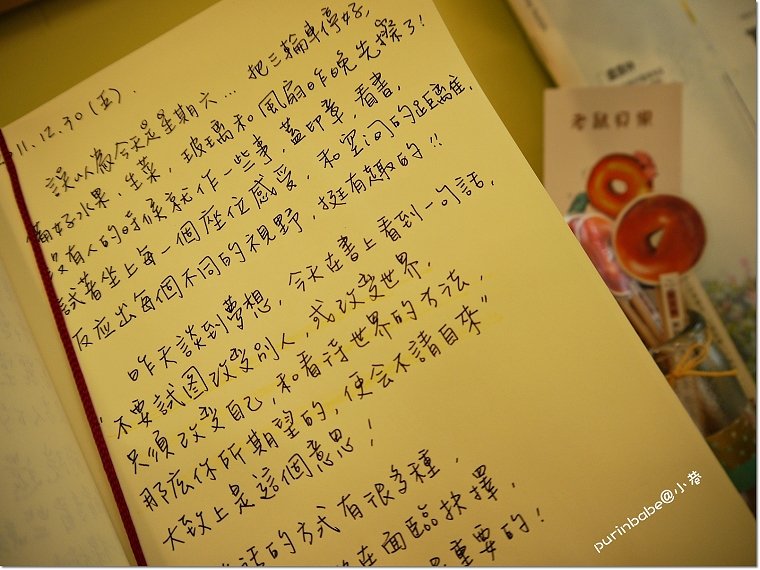 11.12.30(五).
誤以為今天是星期六... 把三輪車停好,
備好水果、生菜, 玻璃和風扇昨晚先擦了!
沒有人的時候就作一些事, 蓋印章, 看書,
試著坐上每一個座位感受, 和空间的距離隹,
反應出每個不同的視野, 挺有趣的!!
昨天談到夢想, 今天在書上看到一句話,
"不要試圖改变別人, 或改变世界.
只須改变自己, 和看待世界的方法,
那庅你所期望的, 便会不請自來"
大致上是這個意思!
話的方式有很多種,
在面臨抉擇,
重要的!
老鼠貝果
purinbabe@小巷